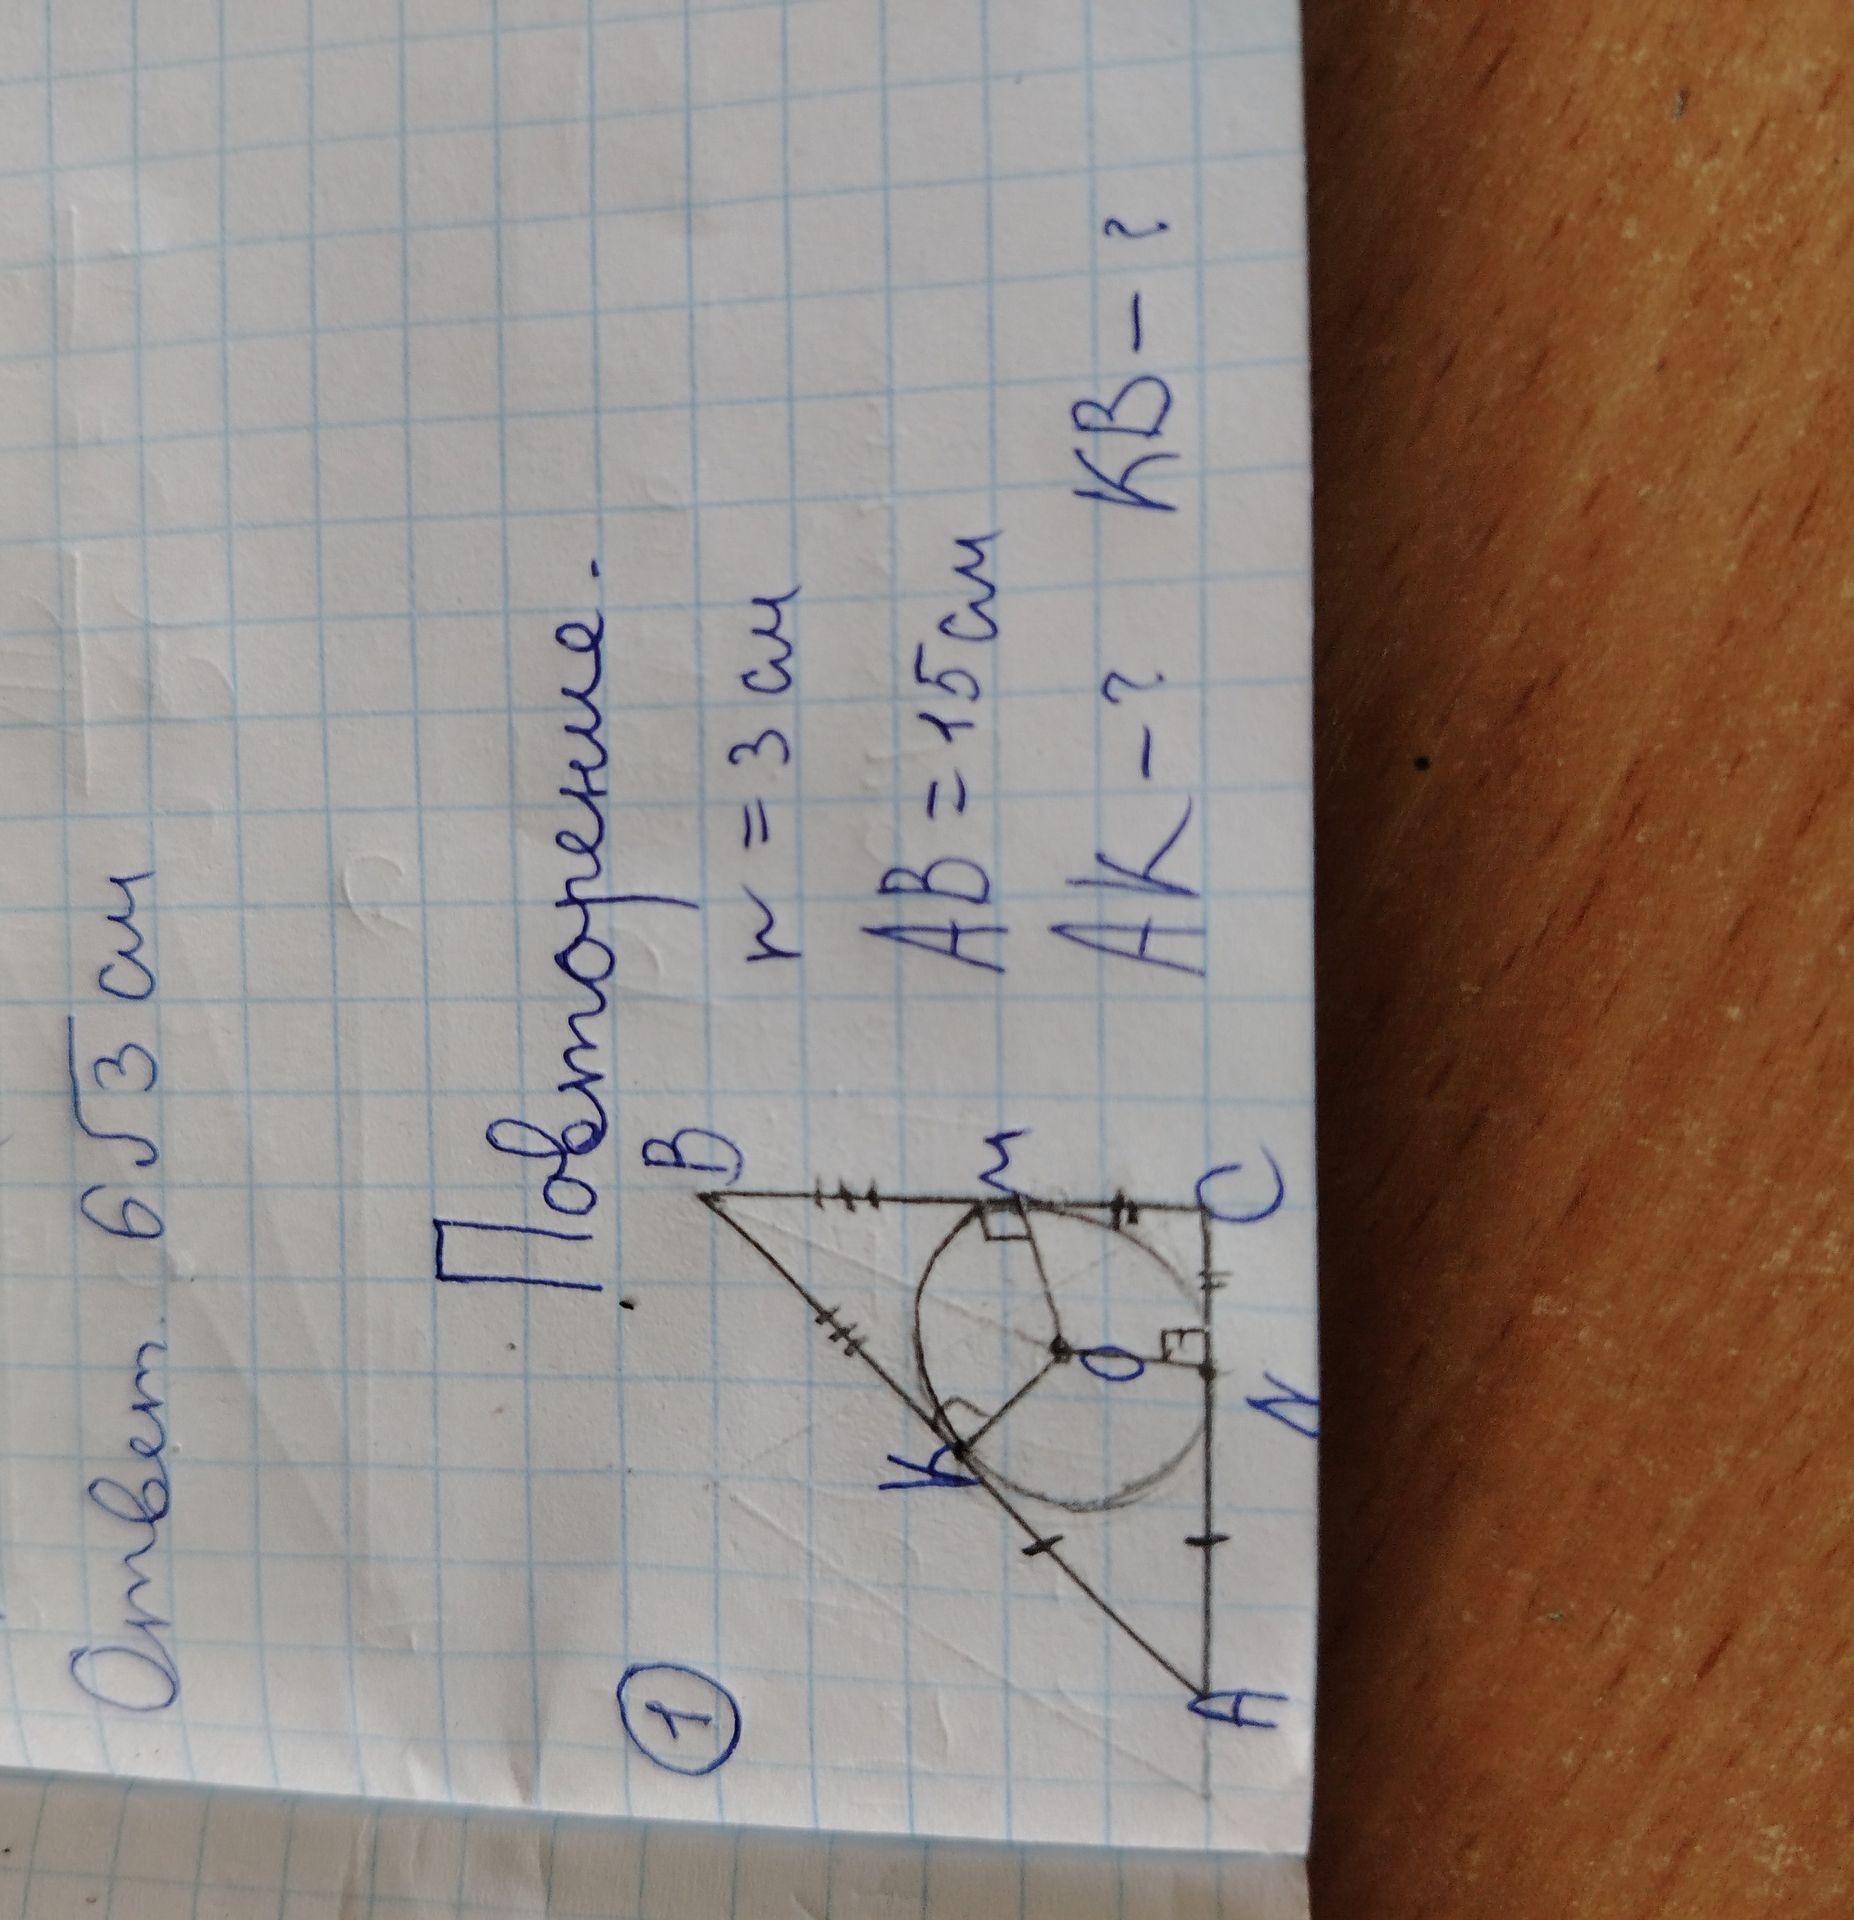 Ответ. 6√3 см
Повторение.
①
B
r = 3 см
K
M
AB = 15 см
O
AK - ? KB - ?
A
N
C